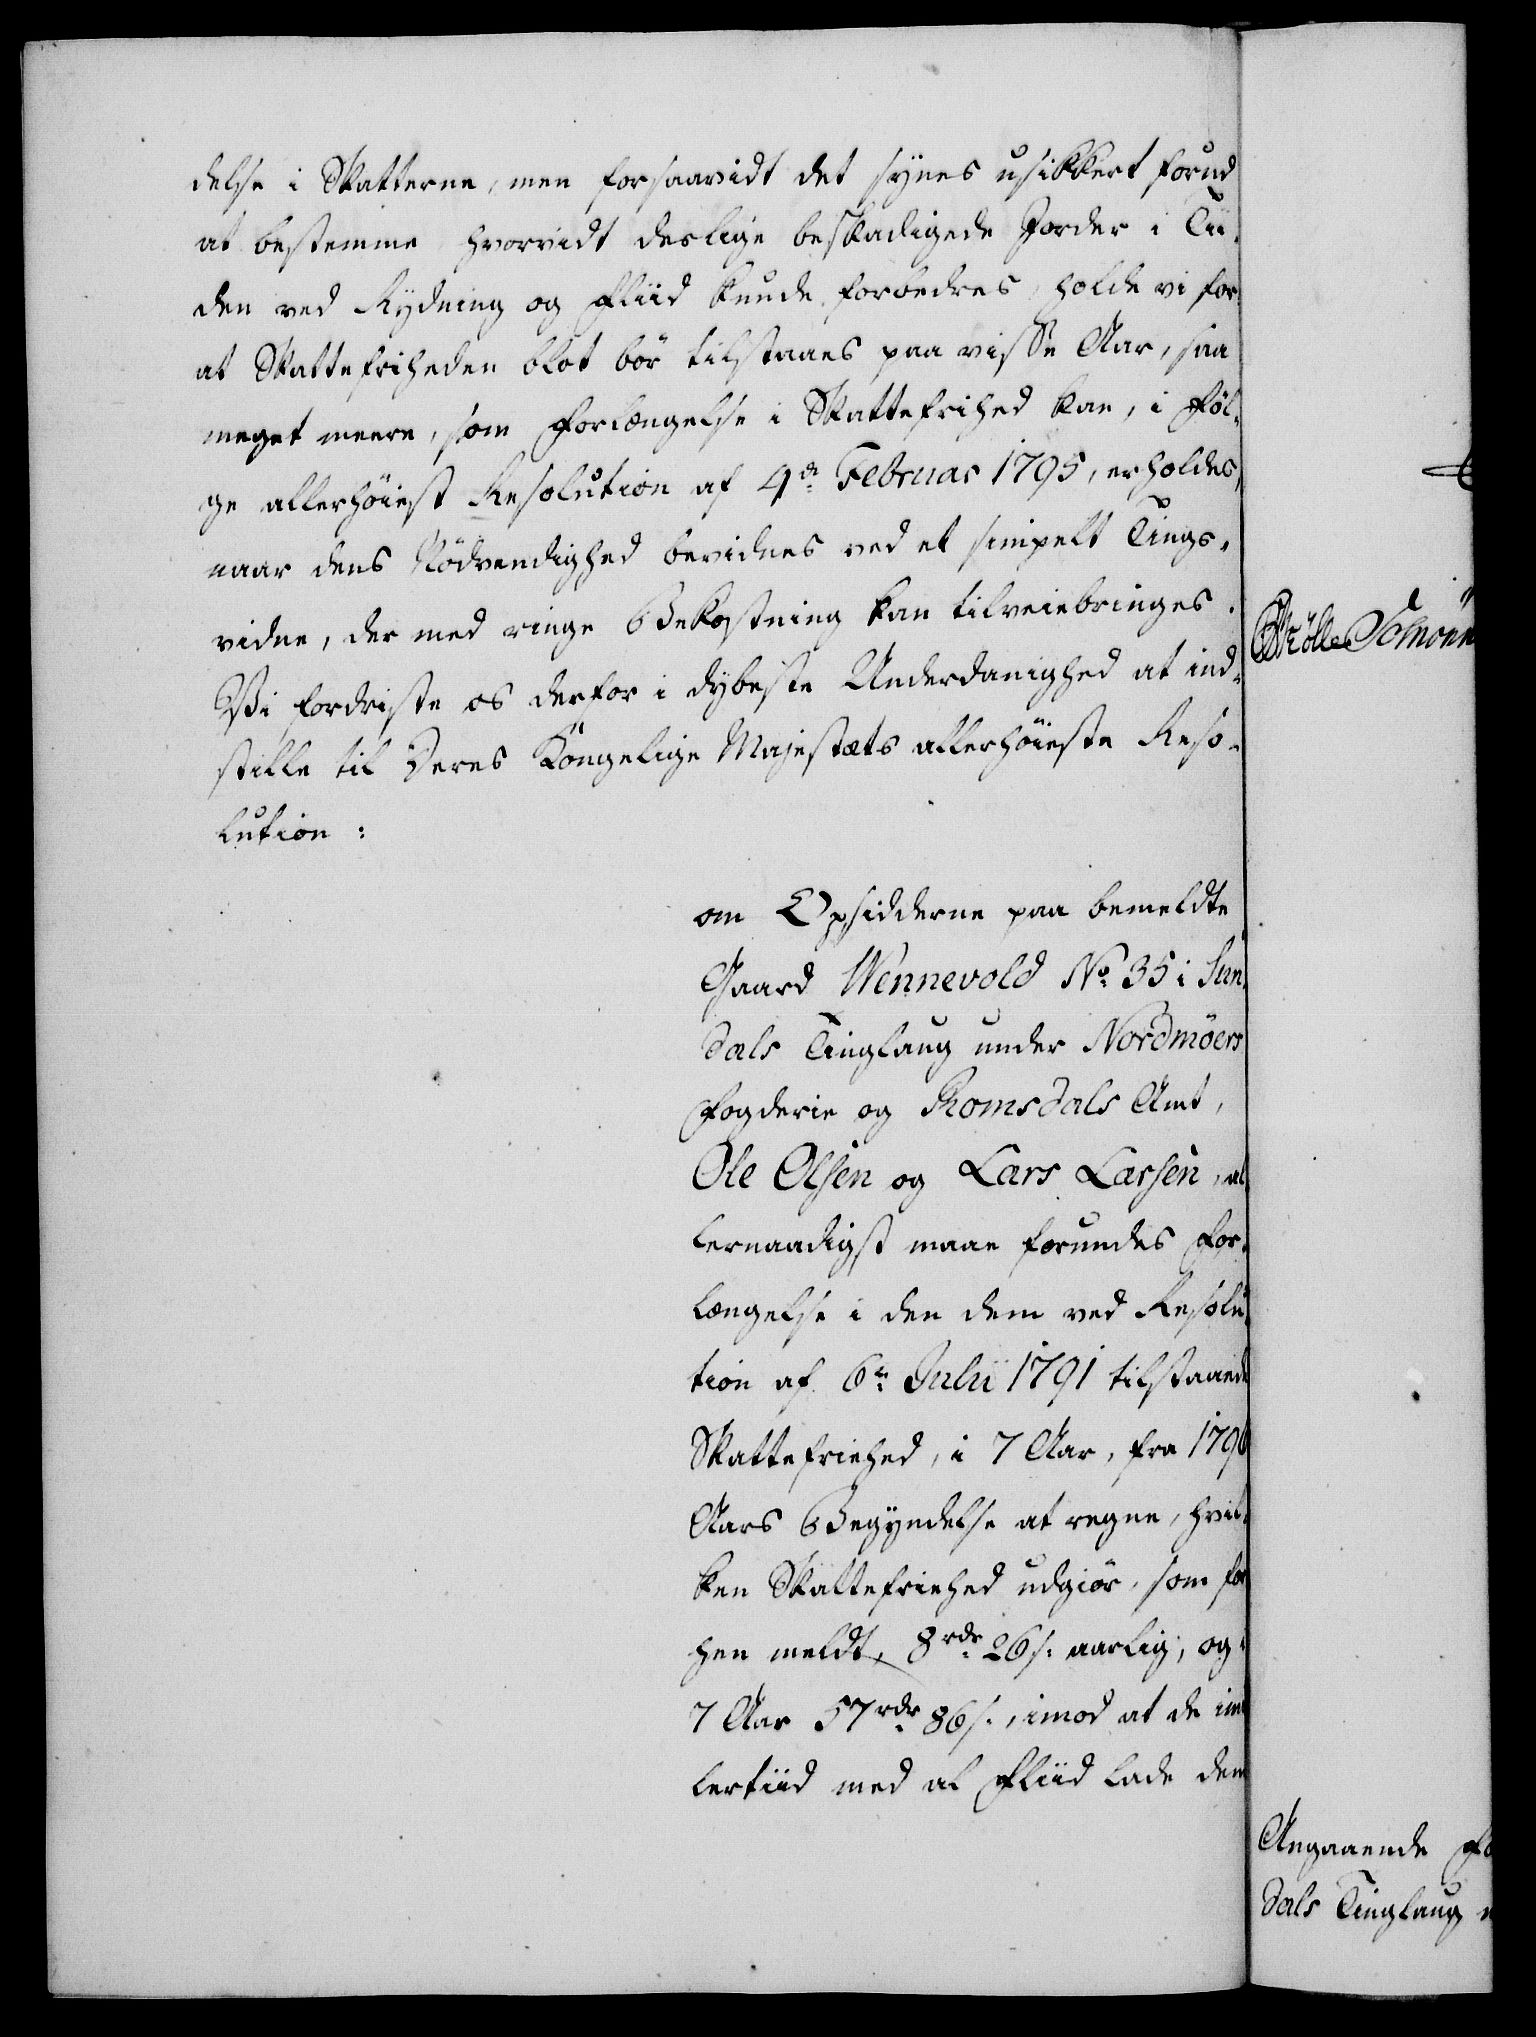 delse i Skatterne, men forsaavidt det synes usikkert forud
at bestemme hvorvidt deslige beskadigede Jorder i Tii-
den ved Rydning og Fliid kunde forbedres, holde vi for
at Skattefriheden blot bör tilstaaes paa visse Aar, saa
meget meere, som Forlængelse i Skattefrihed kan, i Föl-
ge allerhöiest Resolution af 4de Februar 1795, erholdes,
naar dens Nödvendighed bevidnes ved et simpelt Tings-
vidne, der med ringe Bekostning kan tilveiebringes.
Vi fordriste os derfor i dybeste Underdanighed at ind-
stille til Deres Kongelige Majestæts allerhöieste Reso-
lution:
om Opsidderne paa bemeldte
Gaard Wennevold No 35 i Sun-
dals Tinglaug under Nordmöers
Fogderie og Romsdals Amt,
Ole Olsen og Lars Larsen, al-
lernaadigst maae forundes For-
længelse i den dem ved Resolu-
tion af 6te Julii 1791 tilstaaede
Skattefriehed, i 7 Aar, fra 1796
Aars Begyndelse at regne, hvil-
ken Skattefriehed udgiör, som for
hen meldt, 8 rdr 26 s. aarlig, og
7 Aar 57 rdr 86 s., imod at de im
lertiid med al Fliid lade dem
Schmön
Angaaende Fo
dals Tinglaug